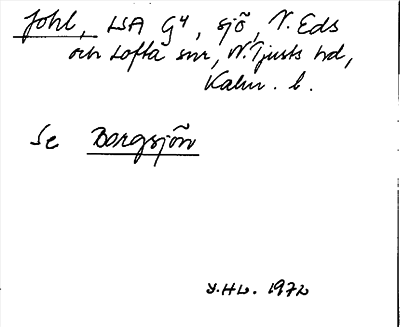 Johl, LSA G4, sjö, V. Eds
och Lofta snr, N. Tjusts hd,
Kalm. l.
Se Borgsjön
S.HL. 1972